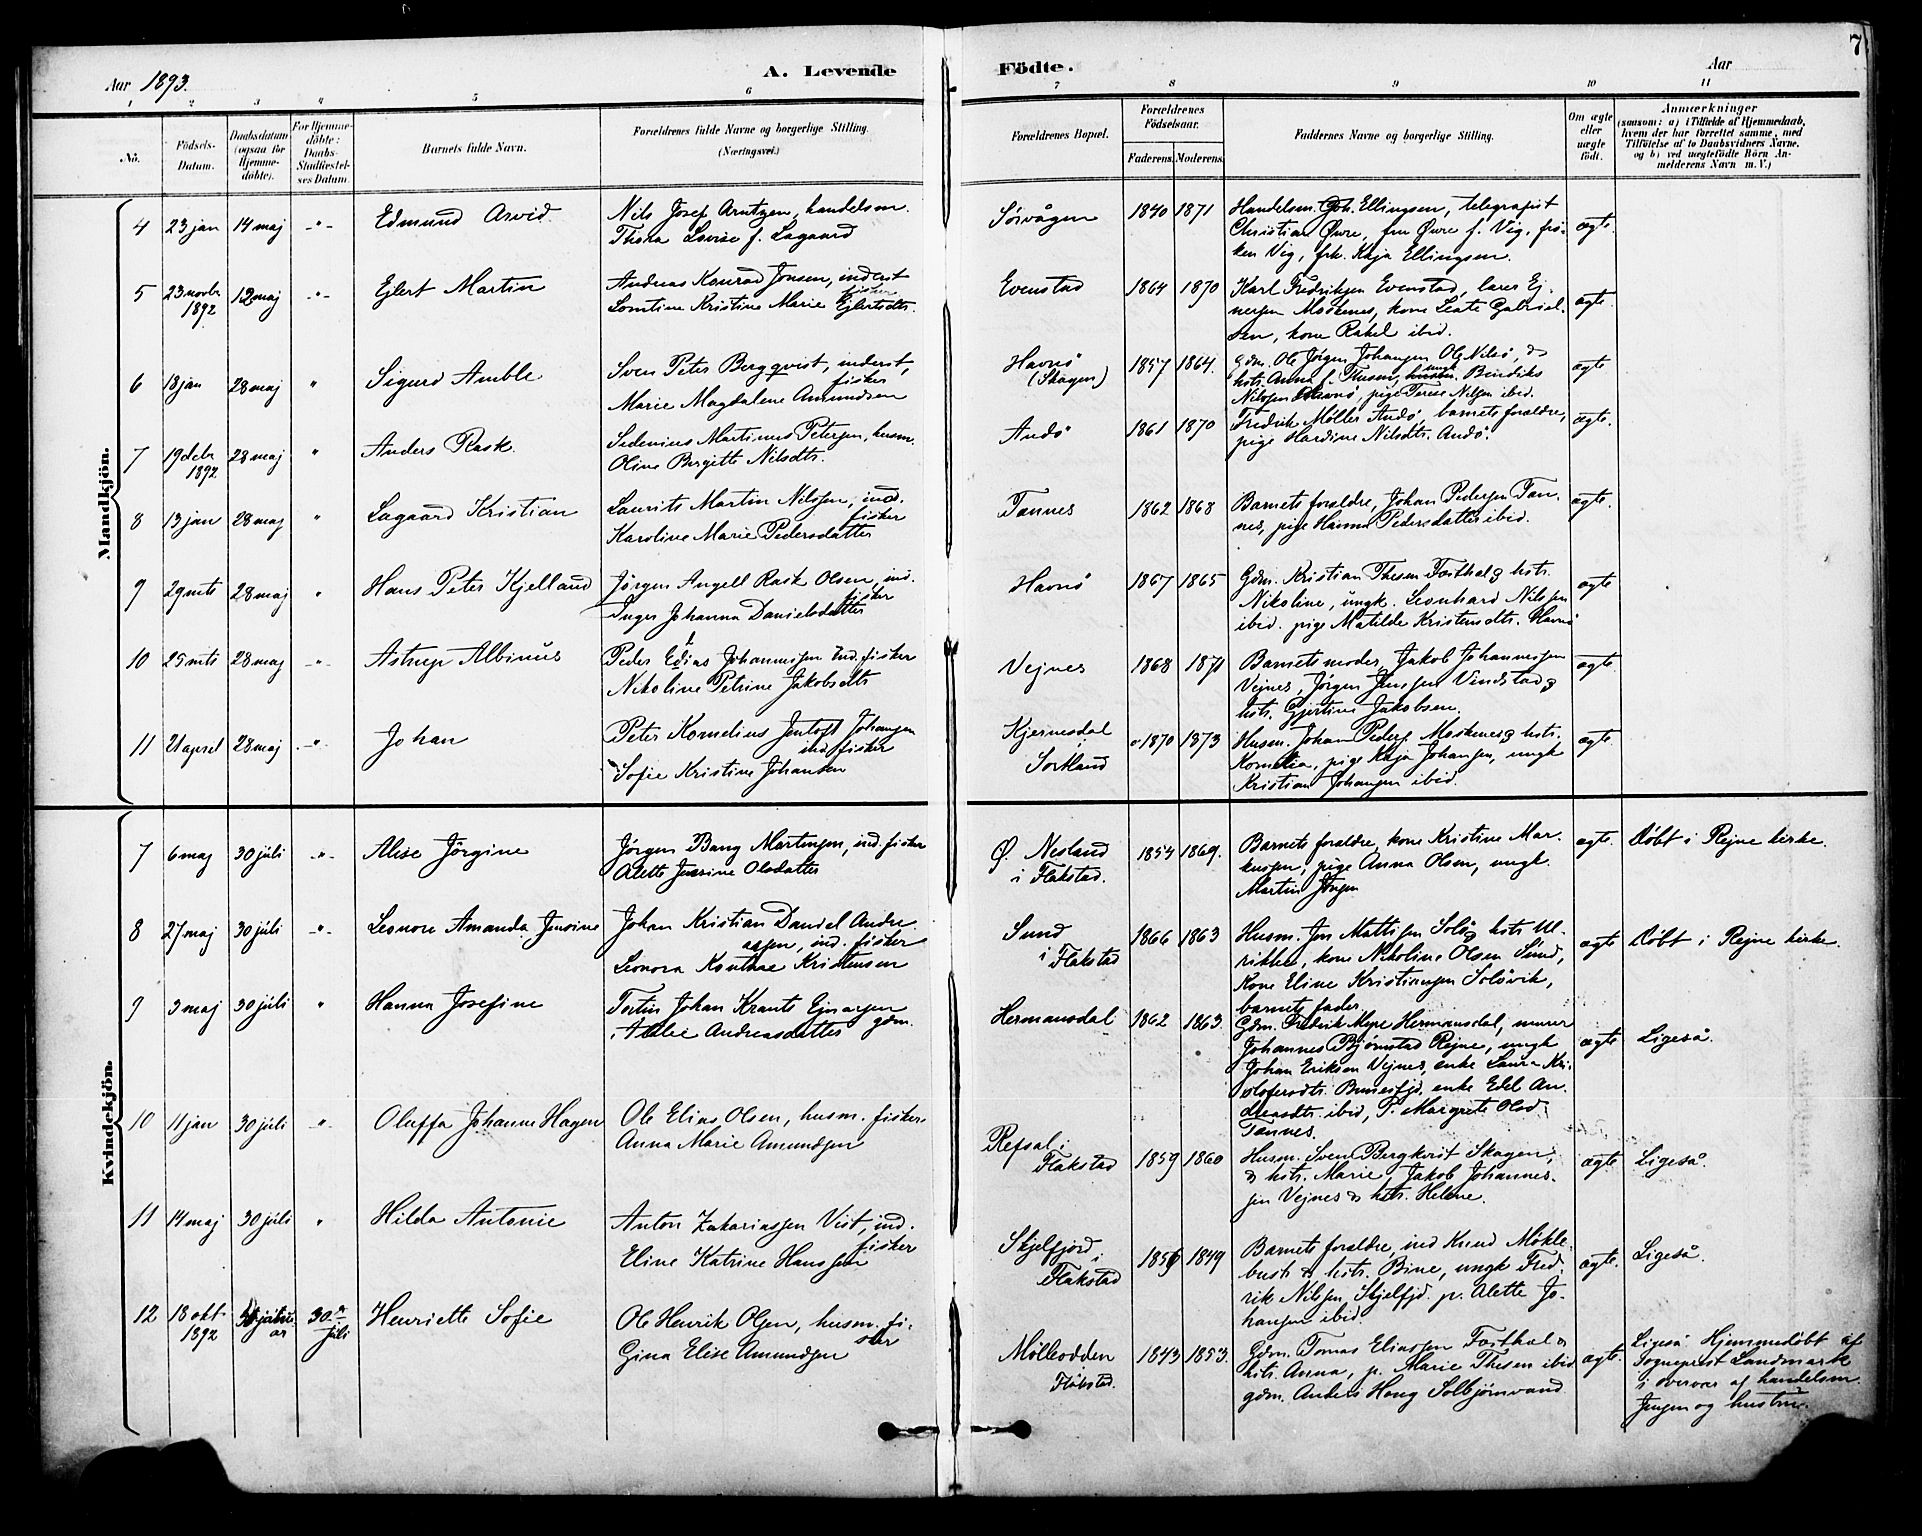 7
Aar 1893.
A. Levende Födte.
Aar
1 2 3 4 5 6 7 8 9 10 11
No.
Födsels-
Datum.
Daabsdatum
(ogsaa for
Hjemme-
döbte).
For Hjemme-
döbte:
Daabs-
Stadfæstel-
ses Datum.
Barnets fulde Navn.
Forældrenes fulde Navne og borgerlige Stilling.
(Næringsvei.)
Forældrenes Bopæl.
Forældrenes
Födselsaar.
Faderens. Moderens.
Faddernes Navne og borgerlige Stilling.
Om ægte
eller
uægte
födt.
Anmærkninger
(saasom: a) i Tilfælde af Hjemmedaab,
hvem der har forrettet samme, med
Tilföielse af to Daabsvidners Navne,
og b) ved uægtefödte Börn An-
melderens Navn m. V.)
Mandkjön.
4 23 jan 14 maj -"- Edmund Arvid. Nils Josef Arntzen, handelsm.
Thora Lovise f. Lagaard
Sørvågen 1840 1871 Handelsm. Joh. Ellingsen, telegrafist
Christian Øvre, fru Øvre f. Vig, frø-
ken Vig, frk. Kaja Ellingsen. ægte.
5 23 novbr 1892 12 maj -"- Ejlert Martin Andreas Konrad Jensen, inderst
fisker
Lorntine Kristine Marie Ejlertsdtr.
Evenstad 1864 1870 Karl Fredriksen Evenstad, lærer Ej-
nersen Moskenes, kone Leate Gabriel-
sen, kone Rakel ibid. ægte.
6 18 jan 28 maj " Sigurd Amble Sven Peter Bergqvist, inderst,
fisker
Marie Magdalene Amundsen
Havnø
(Skagen) 1857 1864. Gdm. Ole Jørgen Johansen Ole Nilsø, &
hstr. Anna f. Thesen, ungk. Bendiks
Nilssen Havnø, pige Terese Nilsen ibid. ægte
7 19 debr 1892 28 maj " Anders Rask. Sedenius Martinus Petersen, husm.
Oline Bergitte Nilsdtr.
Andø 1861 1870 Fredrik Møller Andø, barnets forældre,
pige Hardine Nilsdtr. Andø. ægte.
8 13 jan 28 maj " Lagaard Kristian Laurits Martin Nilssen, ind.
fisker
Karoline Marie Pedersdatter
Tønnes 1862 1868 Barnets forældre, Johan Pedersen Tøn-
nes, pige Hanna Pedersdatter ibid. ægte.
9 29 mts 28 maj " Hans Peter Kjelland Jørgen Angell Rask Olsen, ind.
fisker
Inger Johanna Danielsdatter
Havnø 1867 1865 Gdm. Kristian Thesen Forsthal & hstr.
Nikoline, ungk. Leonhard Nilssen
ibid. pige Matilde Kristensdtr. Havnø ægte
10 25 mts 28 maj -"- Astrup Albinus Peder Elias Johannessen Ind. fisker
Nikoline Petrine Jakobsdtr
Vejnes 1868 1871 Barnets moder, Jakob Johannessen
Vejnes, Jørgen Jenssen Vindstad &
hstr. Gjertine Jakobsen. ægte.
11 21 april 28 maj -"- Johan Peter Kornelius Jentoft Johansen
ind. fisker
Sofie Kristine Johansen
Kjernesdal
i Sørland 1870 1873 Husm. Johan Peders. Moskenes & hstr.
Kornelia, pige Kaja Johansen, ungk
Kristian Johansen ibid. ægte.
Kvindekjön.
7 6 maj 30 juli -"- Alise Jörgine Jørgen Bang Martinsen, ind. fisker
Alette Jensine Olsdatter
Ø. Nesland
i Flakstad. 1854 1869. Barnets forældre, kone Kristine Mar-
kussen, pige Anna Olsen, ungk.
Martin Jensen ægte. Døbt i Rejne kirke.
8 27 maj 30 juli -"- Leonore Amanda Jensine Johan Kristian Daniel Andre-
assen, ind. fisker
Leonora Kristensen
Sund
i Flakstad 1866 1863 Husm. Jens Mattisen Solø & hstr. Ul-
rikke, kone Nikoline Olsen Sund,
Kone Eline Kristiansen Soløvik,
barnets fader. ægte Døbt i Rejne kirke.
9 3 maj 30 juli " Hanna Josefine Tortin Johan Krants Ejnarsen
gdm.
Andreasdatter
Hermansdal 1862 1863. Gdm. Fredrik Meyer Hermansdal, murer
Johannes Bjørnstad Rejne, ungk
Johan Eriksen Vejnes, enke Laura Kri-
stofersdtr. Bunesfjd. enke Edel An-
dreasdtr. ibid, P. Margrete Olsd.
Tønnes. ægte Ligeså.
10 11 jan 30 juli -"- Oluffa Johanne Hagen Ole Elias Olsen, husm. fisker
Anna Marie Amundsen
Refsal i
Flakstad 1859 1860 Husm. Sven Bergkvist Skagen,
& hstr. Marie, Jakob Johannes-
sen Vejnes & hstr. Helene. ægte Ligeså.
11 14 maj 30 juli " Hilda Antonie Anton Zakariassen Vist, ind.
fisker
Eline Katrine Hanssen
Skjelfjord
i Flakstad 1849 Barnets forældre, ind Knud Møkle-
bust & hstr. Bine, ungk Fred-
rik Nilssen Skjelfjd. p. Alette Jo-
hansen ibid. ægte. Ligeså.
12 18 okt 1892 30 juli Henriette Sofie Ole Henrik Olsen, husm. fi-
sker
Gina Elise Amundsen
Mølleodden
Flakstad. 1843 1853. Gdm. Tomas Eliassen Forsthal &
hstr. Anna, p. Marie Thesen ibid
gdm. Anders Haug Solbjørnvand. ægte. Ligeså Hjemmedøbt af
Sogneprest Landmark
i overvær af handelsm.
Jensen og hustru.